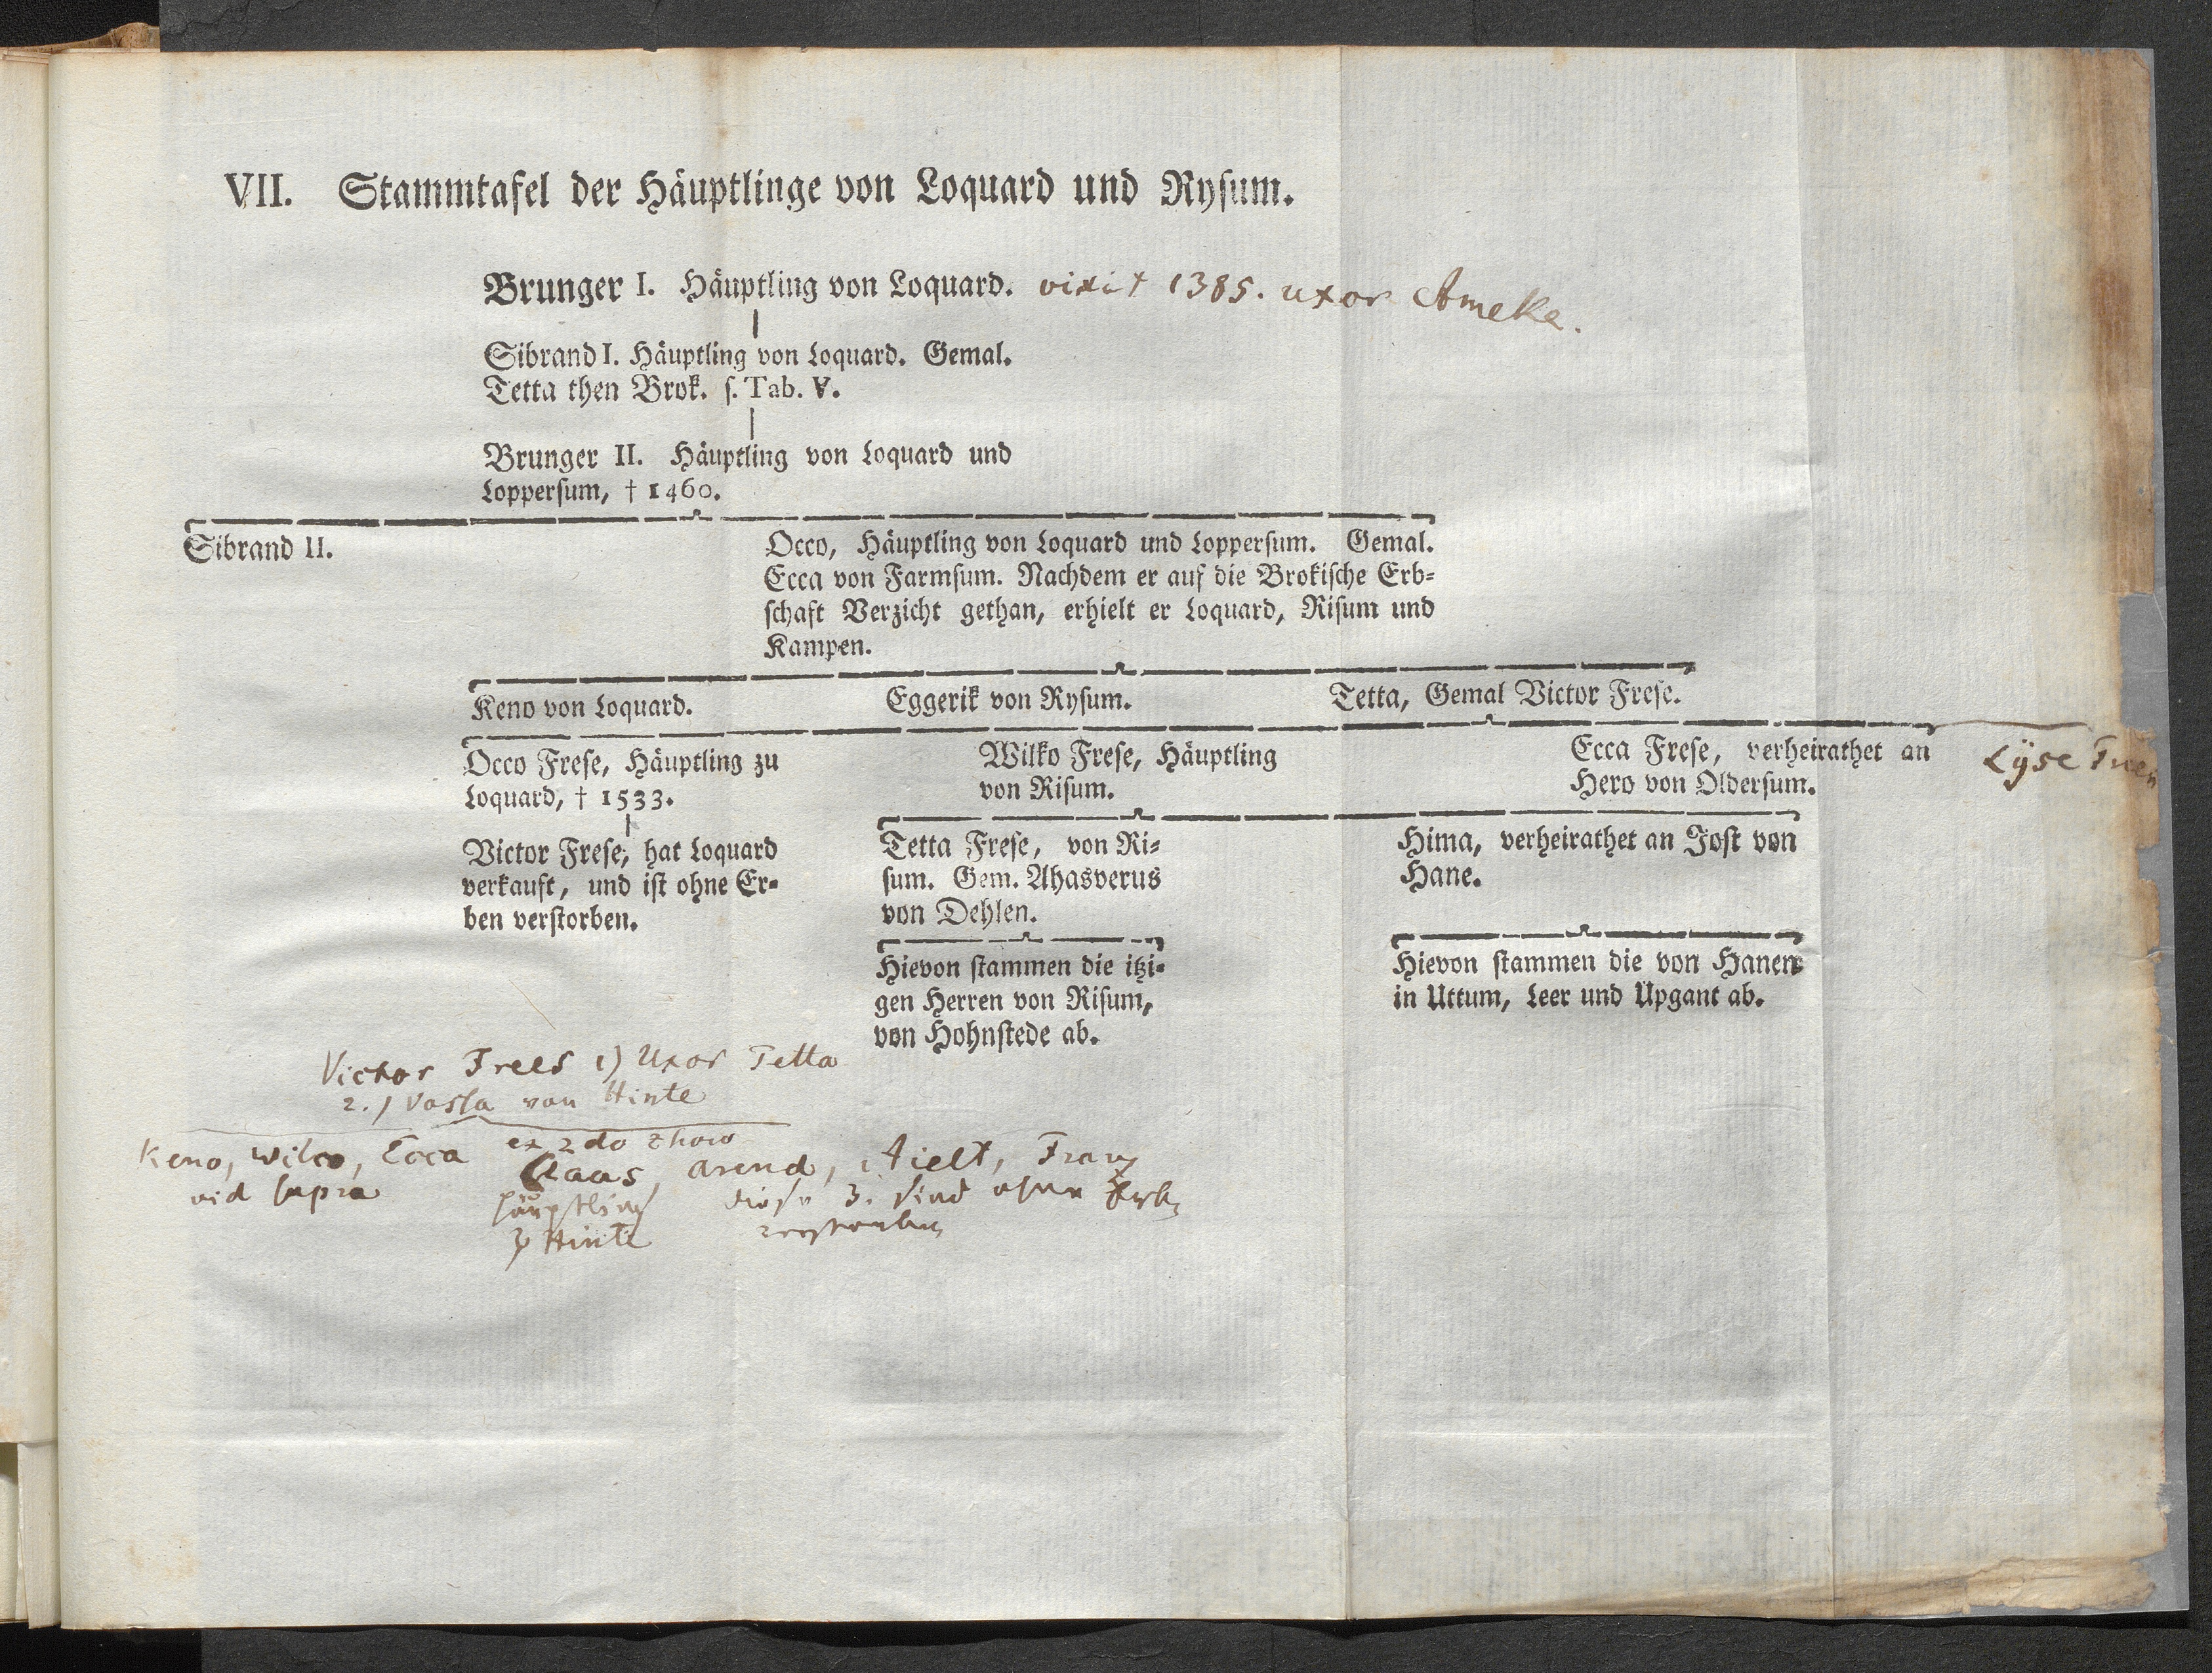 VII. Stammtafel der Häuptlinge von Loquard und Rysum.
Brunger I. Häuptling von Loquard. vixit 1385. uxor Ameke.
Sibrand I. Häuptling von Loquard. Gemal.
Tetta then Brok. s. Tab. V.
Brunger II. Häuptling von Loquard und
Loppersum, † 1460.
Sibrand II.
Occo, Häuptling von Loquard und Loppersum. Gemal.
Ecca von Farmsum. Nachdem er auf die Brokische Erb-
schaft Verzicht gethan, erhielt er Loquard, Risum und
Kampen.
Keno von Loquard.
Eggerik von Rysum.
Tetta, Gemal Victor Frese.
Occo Frese, Häuptling zu
Loquard, † 1533.
Wilko Frese, Häuptling
von Risum.
Ecca Frese, verheirathet an
Hero von Oldersum.
Lÿse
Victor Frese, hat Loquard
verkauft, und ist ohne Er-
ben verstorben.
Tetta Frese, von Ri-
sum. Gem. Ahasverus
von Dehlen.
Hima, verheirathet an Jost von
Hane.
Hievon stammen die itzi-
gen Herren von Risum,
von Hohnstede ab.
Hievon stammen die von Hanen
in Uttum, Leer und Upgant ab.
Victor Frees 1) Uxor Tetta
2.) von Hinte
Keno, Wilco, Ecca
vid supra
ex 2do thoro
Claas, Arend, Aielt, Franz
Häuptling
zu Hinte
diese 3. sind ohne Erben
verstorben